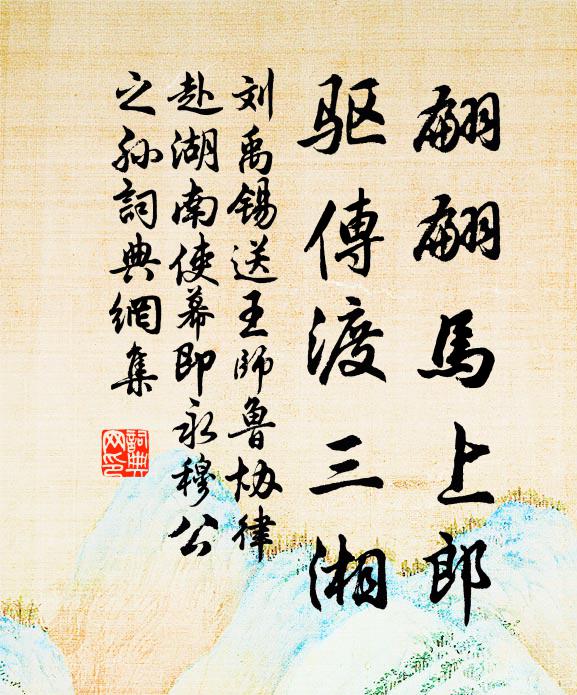 翩翩馬上郎
驱傳渡三湘
刘禹錫送王師魯协律
赴湖南使幕即永穆公
之孙詞典網集
詞典网印